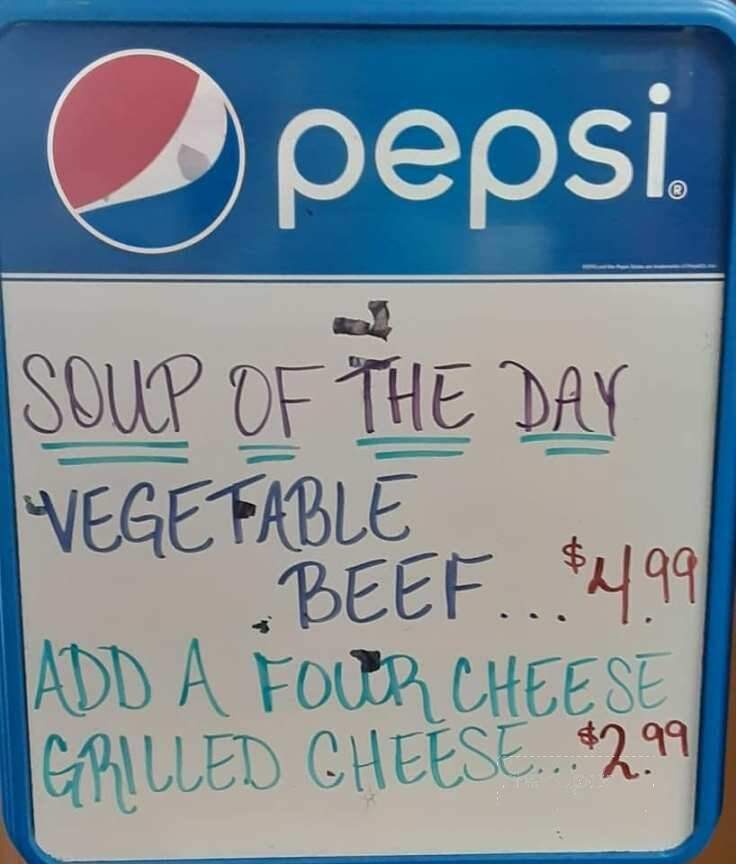 pepsi®
SOUP OF THE DAY
VEGETABLE
BEEF... $4.99
ADD A FOUR CHEESE
GRILLED CHEESE... $2.99